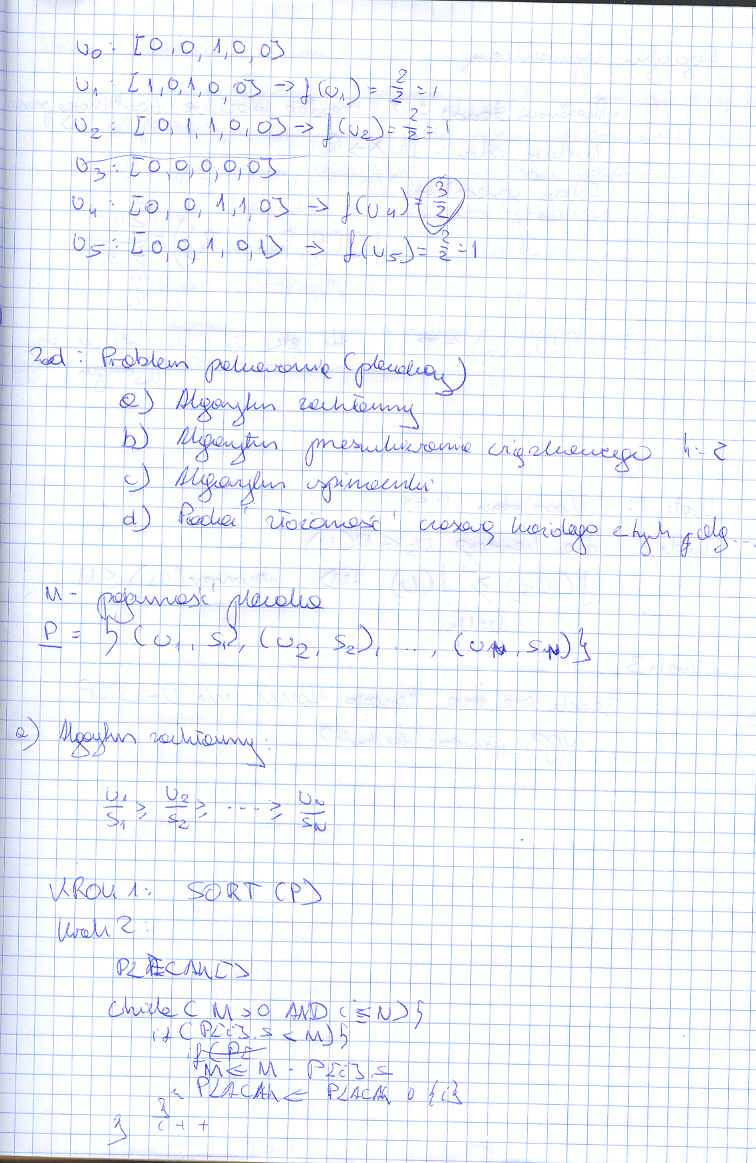 U0: [0,0,1,0,0]
U1: [1,0,1,0,0] → f(U1) = 2/2 = 1
U2: [0,1,1,0,0] → f(U2) = 2/2 = 1
U3: [0,0,0,0,0]
U4: [0,0,1,1,0] → f(U4) = 3/2
U5: [0,0,1,0,1] → f(U5) = 2/2 = 1
Zad: Problem pakowania (plecakowy)
a) Algorytm zachłanny
b) Algorytm przeszukiwania wiązkowego k=2
c) Algorytm wspinaczki
d) Podać złożoność czasową każdego z tych alg...
M - pojemność plecaka
P = { (U1, S1), (U2, S2), ..., (UN, SN) }
a) Algorytm zachłanny:
U1/S1 ≥ U2/S2 ≥ .... ≥ UN/SN
KROK 1: SORT (P)
Krok 2:
PLECAK[]
while ( M > 0 AND i ≤ N) {
if ( P[i].S < M) {
M ← M - P[i].S
PLACAK ← PLACAK {i}
}
i++
}